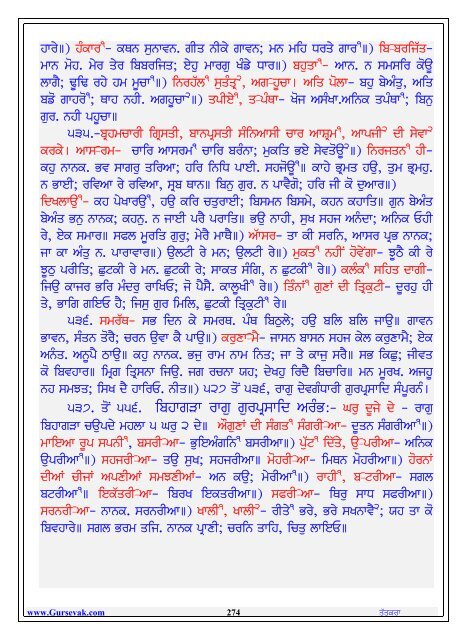 ਹਾਰੇ॥) ਹੰਕਾਰ¹- ਕਥਨ ਸੁਨਾਵਨ. ਗੀਤ ਨੀਕੇ ਗਾਵਨ; ਮਨ ਮਹਿ ਧਰਤੇ ਗਾਰ¹॥) ਬਿ-ਬਰਜਿੱਤ-
ਮਾਨ ਮੋਹ. ਮੇਰ ਤੇਰ ਬਿਬਰਜਿਤ; ਏਹੁ ਮਾਰਗੁ ਖੰਡੇ ਧਾਰ॥) ਬਹੁਤਾ¹- ਆਨ. ਨ ਸਮਸਰਿ ਕੋਊ
ਲਾਗੈ; ਢੂਢਿ ਰਹੇ ਹਮ ਮੂਚਾ¹॥) ਨਿਰਹੱਲ¹ ਸੁਤੰਤ੍ਰ², ਅਗ-ਹੂਚਾ। ਅਤਿ ਪੋਲਾ- ਬਹੁ ਬੇਅੰਤੁ, ਅਤਿ
ਬਡੋ ਗਾਹਰੋ¹; ਥਾਹ ਨਹੀ. ਅਗਹੂਚਾ²॥) ਤਪੀਏ¹, ਤ-ਪੰਥਾ- ਖੋਜ ਅਸੰਖਾ.ਅਨਿਕ ਤਪੰਥਾ¹; ਬਿਨੁ
ਗੁਰ. ਨਹੀ ਪਹੂਚਾ॥
੫੩੫.-ਬ੍ਰਹਮਚਾਰੀ ਗ੍ਰਿਸਤੀ, ਬਾਨਪ੍ਰਸਤੀ ਸੰਨਿਆਸੀ ਚਾਰ ਆਸ਼੍ਰਮ¹, ਆਪਜੀ² ਦੀ ਸੇਵਾ²
ਕਰਕੇ। ਆਸ-ਰਮ- ਚਾਰਿ ਆਸਰਮੰ¹ ਚਾਰਿ ਬਰੰਨਾ; ਮੁਕਤਿ ਭਏ ਸੇਵਤੋਊ²॥) ਨਿਰਜਤਨ¹ ਹੀ-
ਕਹੁ ਨਾਨਕ. ਭਵ ਸਾਗਰੁ ਤਰਿਆ; ਹਰਿ ਨਿਧਿ ਪਾਈ. ਸਹਜੋਊ¹॥ ਕਾਹੇ ਭ੍ਰਮਤ ਹਉ, ਤੁਮ ਭ੍ਰਮਹੁ.
ਨ ਭਾਈ; ਰਵਿਆ ਰੇ ਰਵਿਆ, ਸ੍ਰਬ ਥਾਨ॥ ਬਿਨੁ ਗੁਰ. ਨ ਪਾਵੈਗੋ; ਹਰਿ ਜੀ ਕੋ ਦੁਆਰ॥)
ਦਿਖਲਾਉਂ¹- ਕਹ ਪੇਖਾਰਉ¹, ਹਉ ਕਰਿ ਚਤੁਰਾਈ; ਬਿਸਮਨ ਬਿਸਮੇ, ਕਹਨ ਕਹਾਤਿ॥ ਗੁਨ ਬੇਅੰਤ
ਬੇਅੰਤ ਭਨੁ ਨਾਨਕ; ਕਹਨੁ. ਨ ਜਾਈ ਪਰੈ ਪਰਾਤਿ॥ ਭਉ ਨਾਹੀ, ਸੁਖ ਸਹਜ ਅਨੰਦਾ; ਅਨਿਕ ਓਹੀ
ਰੇ, ਏਕ ਸਮਾਰ॥ ਸਫਲ ਮੂਰਤਿ ਗੁਰੁ; ਮੇਰੈ ਮਾਥੈ॥) ਆੱਸਰ- ਤਾ ਕੀ ਸਰਨਿ, ਆਸਰ ਪ੍ਰਭ ਨਾਨਕ;
ਜਾ ਕਾ ਅੰਤੁ ਨ. ਪਾਰਾਵਾਰ॥) ਉਲਟੀ ਰੇ ਮਨ; ਉਲਟੀ ਰੇ॥) ਮੁਕਤ¹ ਨਹੀਂ ਹੋਵੇਂਗਾ- ਝੂਠੈ ਕੀ ਰੇ
ਝੂਠੁ ਪਰੀਤਿ; ਛੁਟਕੀ ਰੇ ਮਨ. ਛੁਟਕੀ ਰੇ; ਸਾਕਤ ਸੰਗਿ, ਨ ਛੁਟਕੀ¹ ਰੇ॥) ਕਲੰਕ¹ ਸਹਿਤ ਦਾਗੀ-
ਜਿਉ ਕਾਜਰ ਭਰਿ ਮੰਦਰੁ ਰਾਖਿਓ; ਜੋ ਪੈਸੈ. ਕਾਲੂਖੀ¹ ਰੇ॥) ਤਿੰਨਾਂ¹ ਗੁਣਾਂ ਦੀ ਤ੍ਰਿਕੁਟੀ- ਦੂਰਹੁ ਹੀ
ਤੇ, ਭਾਗਿ ਗਇਓ ਹੈ; ਜਿਸੁ ਗੁਰ ਮਿਲਿ, ਛੁਟਕੀ ਤ੍ਰਿਕੁਟੀ¹ ਰੇ॥
੫੩੬. ਸਮਰੱਥ- ਸਭ ਦਿਨ ਕੇ ਸਮਰਥ. ਪੰਥ ਬਿਠੁਲੇ; ਹਉ ਬਲਿ ਬਲਿ ਜਾਉ॥ ਗਾਵਨ
ਭਾਵਨ, ਸੰਤਨ ਤੋਰੈ; ਚਰਨ ਉਵਾ ਕੈ ਪਾਉ॥) ਕਰੁਣਾ-ਮੈ- ਜਾਸਨ ਬਾਸਨ ਸਹਜ ਕੇਲ ਕਰੁਣਾਮੈ; ਏਕ
ਅਨੰਤ. ਅਨੂਪੈ ਠਾਉ॥ ਕਹੁ ਨਾਨਕ. ਭਜੁ ਰਾਮ ਨਾਮ ਨਿਤ; ਜਾ ਤੇ ਕਾਜੁ ਸਰੈ॥ ਸਭ ਕਿਛੁ; ਜੀਵਤ
ਕੋ ਬਿਵਹਾਰ॥ ਮ੍ਰਿਗ ਤ੍ਰਿਸਨਾ ਜਿਉ. ਜਗ ਰਚਨਾ ਯਹ; ਦੇਖਹੁ ਰਿਦੈ ਬਿਚਾਰਿ॥ ਮਨ ਮੂਰਖ. ਅਜਹੂ
ਨਹ ਸਮਝਤ; ਸਿਖ ਦੈ ਹਾਰਿਓ. ਨੀਤ॥) ੫੨੭ ਤੋਂ ੫੩੬, ਰਾਗੁ ਦੇਵਗੰਧਾਰੀ ਗੁਰਪ੍ਰਸਾਦਿ ਸੰਪੂਰਨੰ।
੫੩੭. ਤੋਂ ੫੫੬. ਬਿਹਾਗੜਾ ਰਾਗੁ ਗੁਰਪ੍ਰਸਾਦਿ ਅਰੰਭ:- ਘਰੁ ਦੂਜੇ ਦੇ - ਰਾਗੁ
ਬਿਹਾਗੜਾ ਚਉਪਦੇ ਮਹਲਾ ੫ ਘਰੁ ੨ ਦੇ॥ ਔਗੁਣਾਂ ਦੀ ਸੰਗਤ¹ ਸੰਗਰੀ-ਆ- ਦੂਤਨ ਸੰਗਰੀਆ¹॥)
ਮਾਇਆ ਰੂਪ ਸਪਨੀ¹, ਬਸਰੀ-ਆ- ਭੁਇਅੰਗਨਿ¹ ਬਸਰੀਆ॥) ਪੁੱਟ¹ ਦਿੱਤੇ, ਉ-ਪਰੀਆ- ਅਨਿਕ
ਉਪਰੀਆ¹॥) ਸਹਜਰੀ-ਆ- ਤਉ ਸੁਖ; ਸਹਜਰੀਆ॥ ਮੋਹਰੀ-ਆ- ਮਿਥਨ ਮੋਹਰੀਆ॥) ਹੋਰਨਾਂ
ਦੀਆਂ ਚੀਜਾਂ ਅਪਣੀਆਂ ਸਮਝਣੀਆਂ- ਅਨ ਕਉ; ਮੇਰੀਆ¹॥) ਰਾਹੀਂ¹, ਬ-ਟਰੀਆ- ਸਗਲ
ਬਟਰੀਆ¹॥ ਇਕੱਤਰੀ-ਆ- ਬਿਰਖ ਇਕਤਰੀਆ॥) ਸਫਰੀ-ਆ- ਥਿਰੁ ਸਾਧ ਸਫਰੀਆ॥)
ਸਰਨਰੀ-ਆ- ਨਾਨਕ. ਸਰਨਰੀਆ॥) ਖਾਲੀ¹, ਖਾਲੀ²- ਰੀਤੇ¹ ਭਰੇ, ਭਰੇ ਸਖਨਾਵੈ²; ਯਹ ਤਾ ਕੋ
ਬਿਵਹਾਰੇ॥ ਸਗਲ ਭਰਮ ਤਜਿ. ਨਾਨਕ ਪ੍ਰਾਣੀ; ਚਰਨਿ ਤਾਹਿ, ਚਿਤੁ ਲਾਇਓ॥
www.Gursevak.com 274 ਤੱਤਕਰਾ